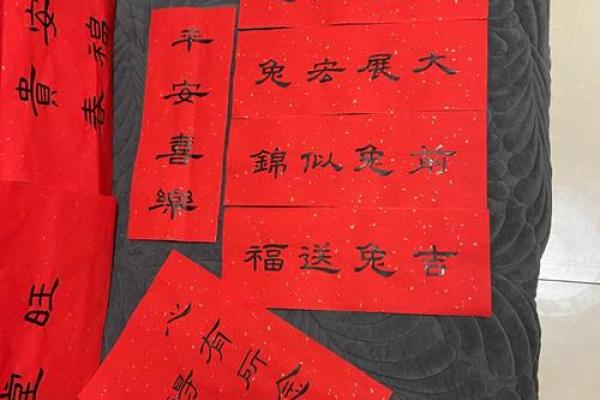 福春
安貴
平安喜樂
大展宏兔
前兔似錦
吉兔送福
旺
心有所
得